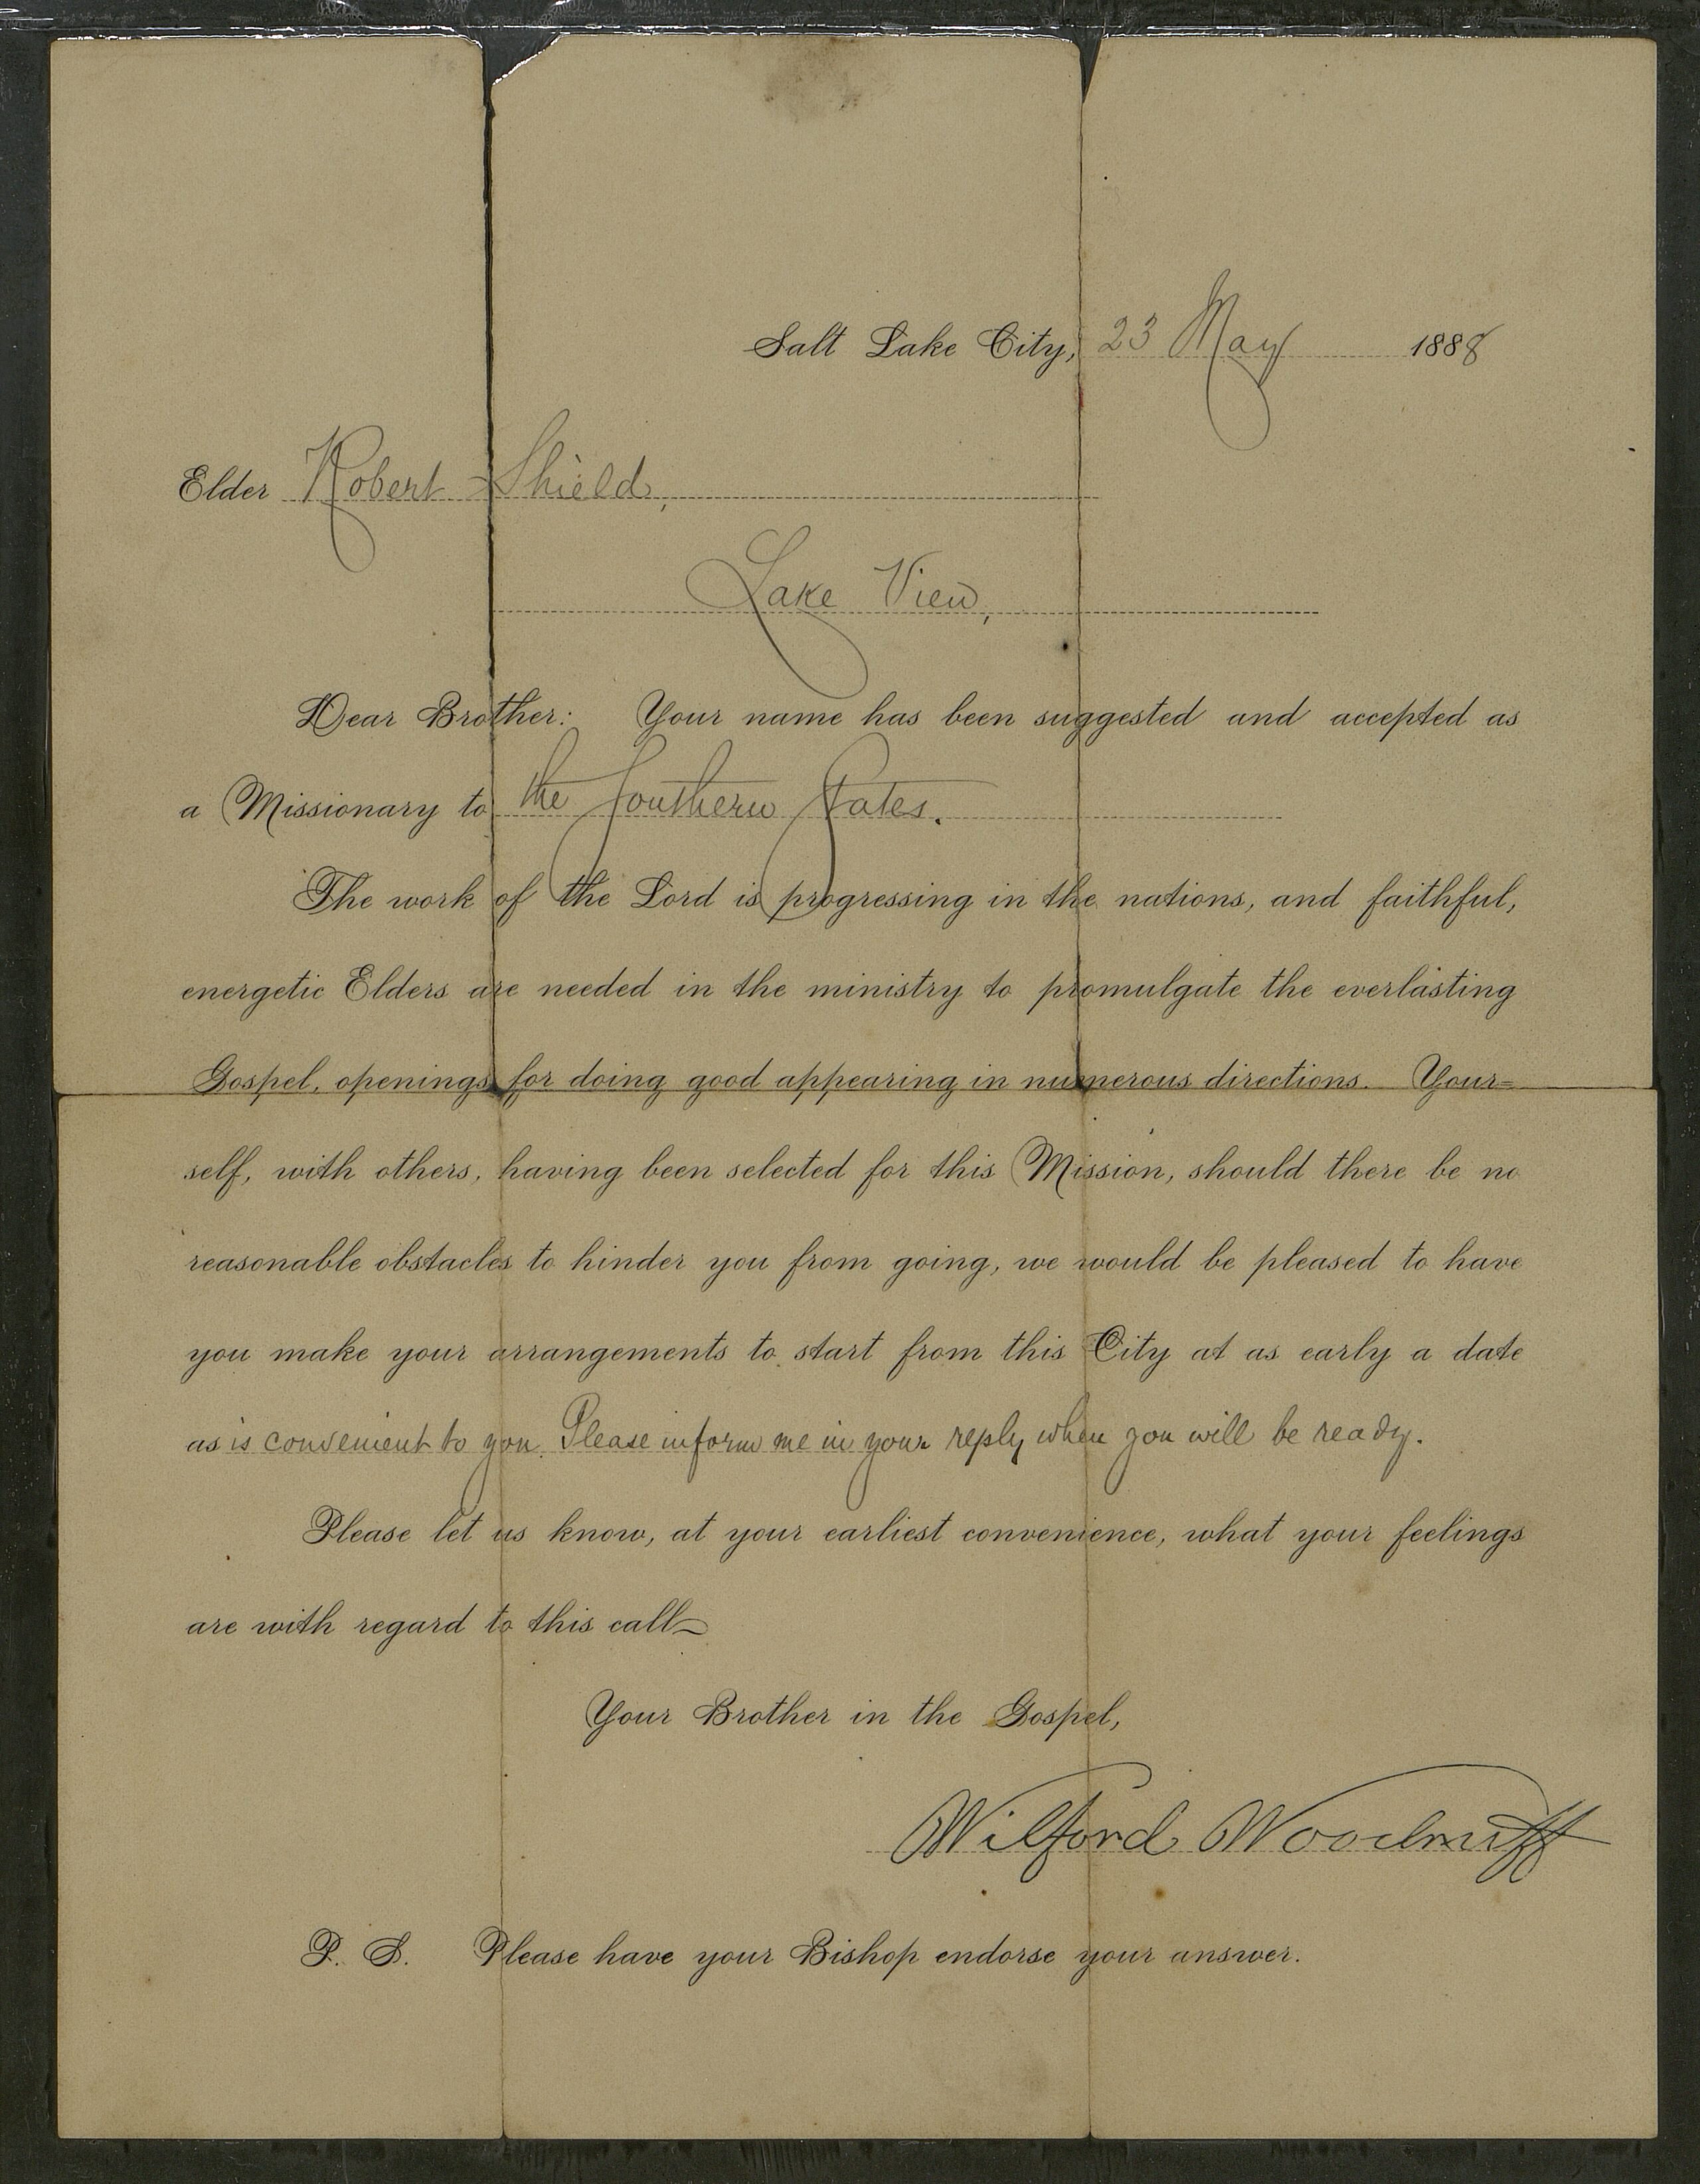 Salt Lake City, 23 May 1888
Elder Robert Shield,
Lake View,
Dear Brother: Your name has been suggested and accepted as
a Missionary to the Southern States.
The work of the Lord is progressing in the nations, and faithful,
energetic Elders are needed in the ministry to promulgate the everlasting
Gospel, openings for doing good appearing in numerous directions. Your=
self, with others, having been selected for this Mission, should there be no
reasonable obstacles to hinder you from going, we would be pleased to have
you make your arrangements to start from this City at as early a date
as is convenient to you. Please inform me in your reply when you will be ready.
Please let us know, at your earliest convenience, what your feelings
are with regard to this call
Your Brother in the Gospel,
Wilford Woodruff
P. S. Please have your Bishop endorse your answer.